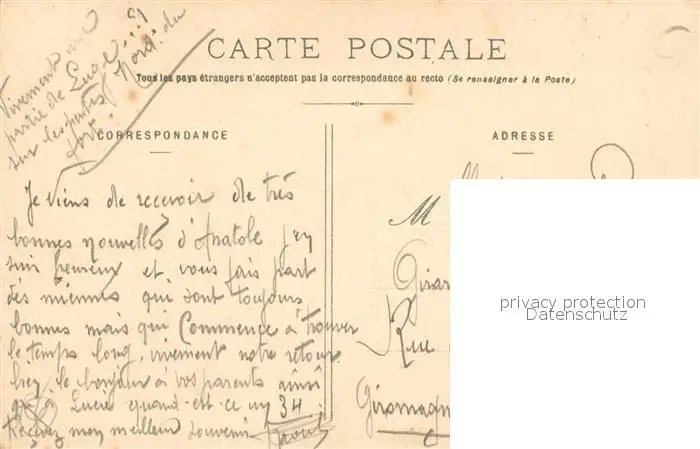 Vivement une
partie de Luge !!!
sur les pentes Nord du
fort.
CARTE POSTALE
Tous les pays étrangers n'acceptent pas la correspondance au recto (Se renseigner à la Poste)
CORRESPONDANCE
ADRESSE
Je viens de recevoir de très
bonnes nouvelles d'Anatole j'en
suis heureux et vous fais part
des miennes qui sont toujours
bonnes mais qui Commence à trouver
le temps long, vivement notre retour
le bonjour à vos parents ainsi
qu'à Lucie quand est-ce un 34
Recevez mon meilleur souvenir
M
Girar
Rue
Giromagn
privacy protection
Datenschutz